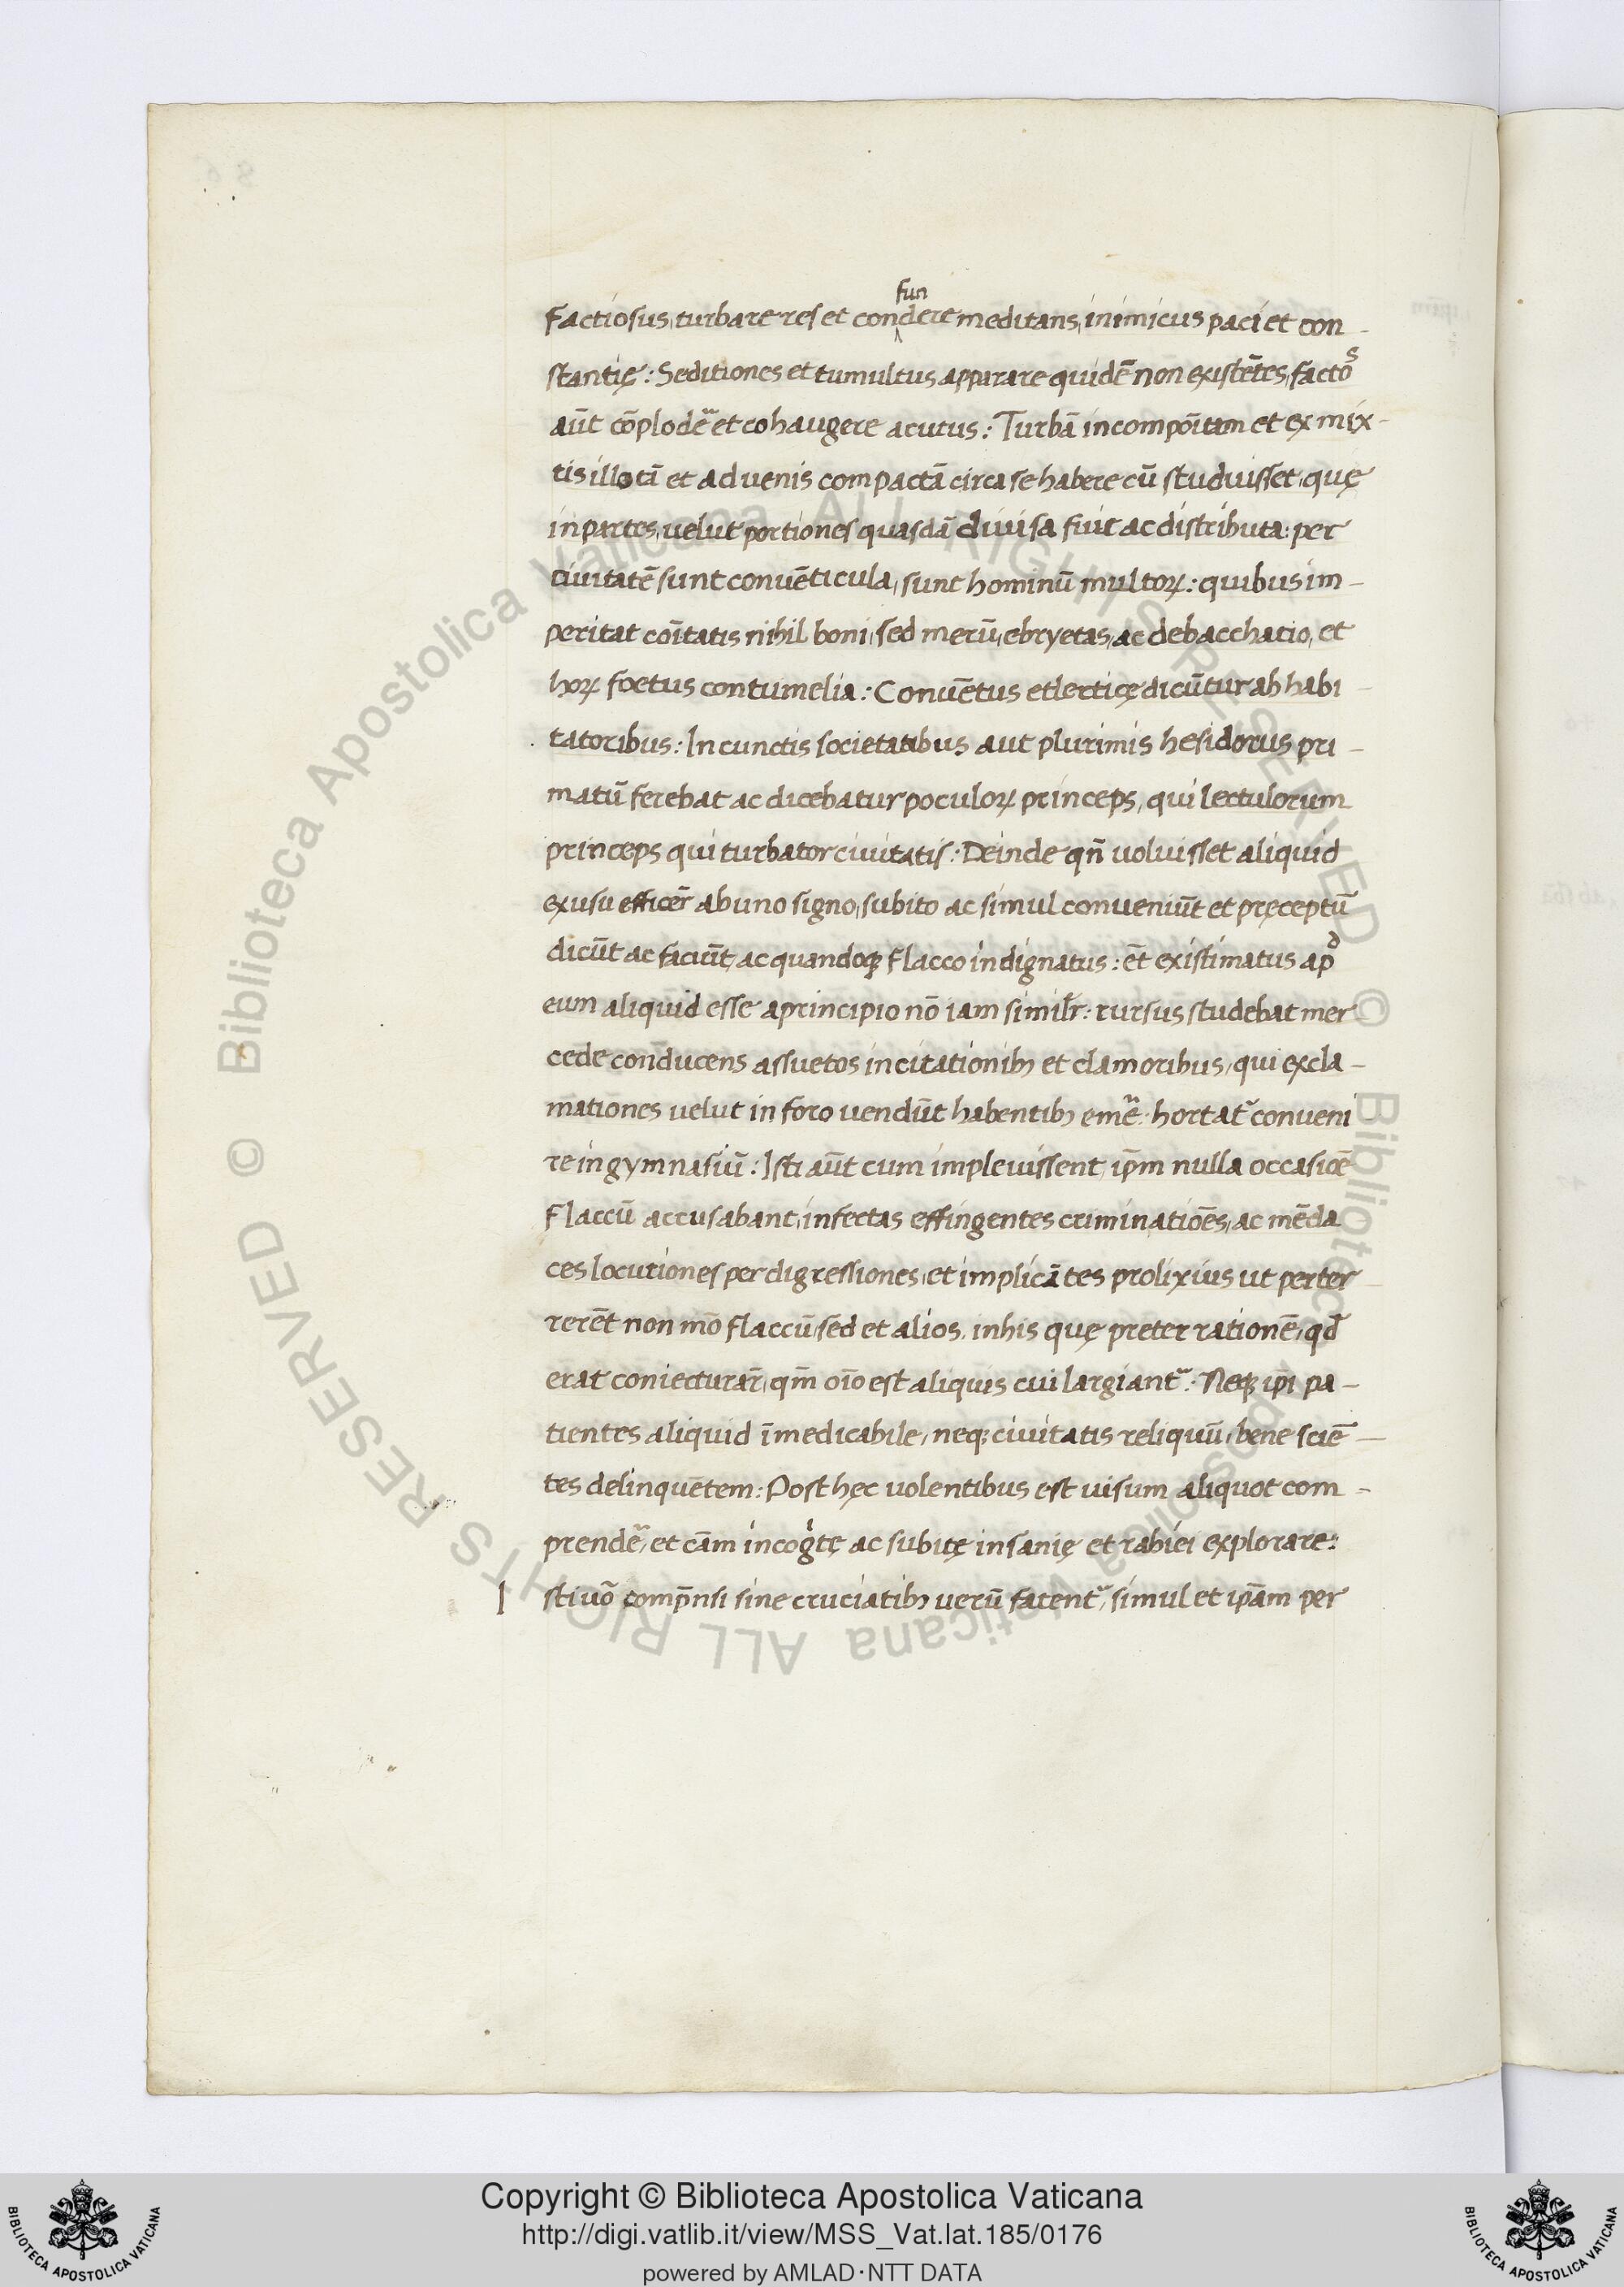 factiosus, turbare res et con^fundere meditans, inimicus paci et con-
stantię: Seditiones et tumultus apparare quidē non existētes, factos
aūt cōplodē et cohaugere acutus: Turbā incompōitam et ex mix-
tis illotā et aduenis compactā circa se habere cū studuisset, quę
in partes, uelut portiones quasdā diuisa fuit ac distributa: per
ciuitatē sunt conuēticula, sunt hominū multoꝝ: quibus im-
peritat cōitatis nihil boni, sed merū, ebryetas, ac debacchatio, et
hoꝝ foetus contumelia: Conuētus et lecticę dicūtur ab habi
tatoribus: In cunctis societatibus aut plurimis hesidorus pri-
matū ferebat ac dicebatur poculoꝝ princeps, qui lectulorum
princeps qui turbator ciuitatis: Deinde qn̄ uoluisset aliquid
ex usu efficer̄ ab uno signo, subito ac simul conueniūt et pręceptū
dicūt ac faciūt, ac quandoqꝫ flacco indignatus: ēt existimatus apᵈ
eum aliquid esse a principio nō iam similr̄: rursus studebat mer
cede conducens assuetos incitationibꝫ et clamoribus, qui excla-
mationes uelut in foro uendūt habentibꝫ emē: hortat̄ conueni
re in gymnasiū: Isti aūt cum impleuissent, ip̄m nulla occasiōe
flaccū accusabant, infectas effingentes criminatiōes, ac mēda
ces locutiones per digressiones, et implicātes prolixius ut perter
rerēt non mō flaccū, sed et alios, in his quę preter rationē, qd̄
erat coniecturar̄, qm̄ oīo est aliquis cui largiant̄: Neqꝫ ip̄i pa-
tientes aliquid īmedicabile, neqꝫ ciuitatis reliquū, bene sciē-
tes delinquētem: Post hęc uolentibus est uisum aliquot com-
prendē, et cām incogᶦtę ac subitę insanię et rabiei explorare:
I sti uō comp̄nsi sine cruciatibꝫ uerū fatent̄, simul et ip̄am per
Copyright © Biblioteca Apostolica Vaticana
http://digi.vatlib.it/view/MSS_Vat.lat.185/0176
powered by AMLAD·NTT DATA
BIBLIOTECA APOSTOLICA VATICANA
BIBLIOTECA APOSTOLICA VATICANA
© Biblioteca Apostolica Vaticana ALL RIGHTS RESERVED © Biblioteca Apostolica Vaticana ALL RIGHTS RESERVED